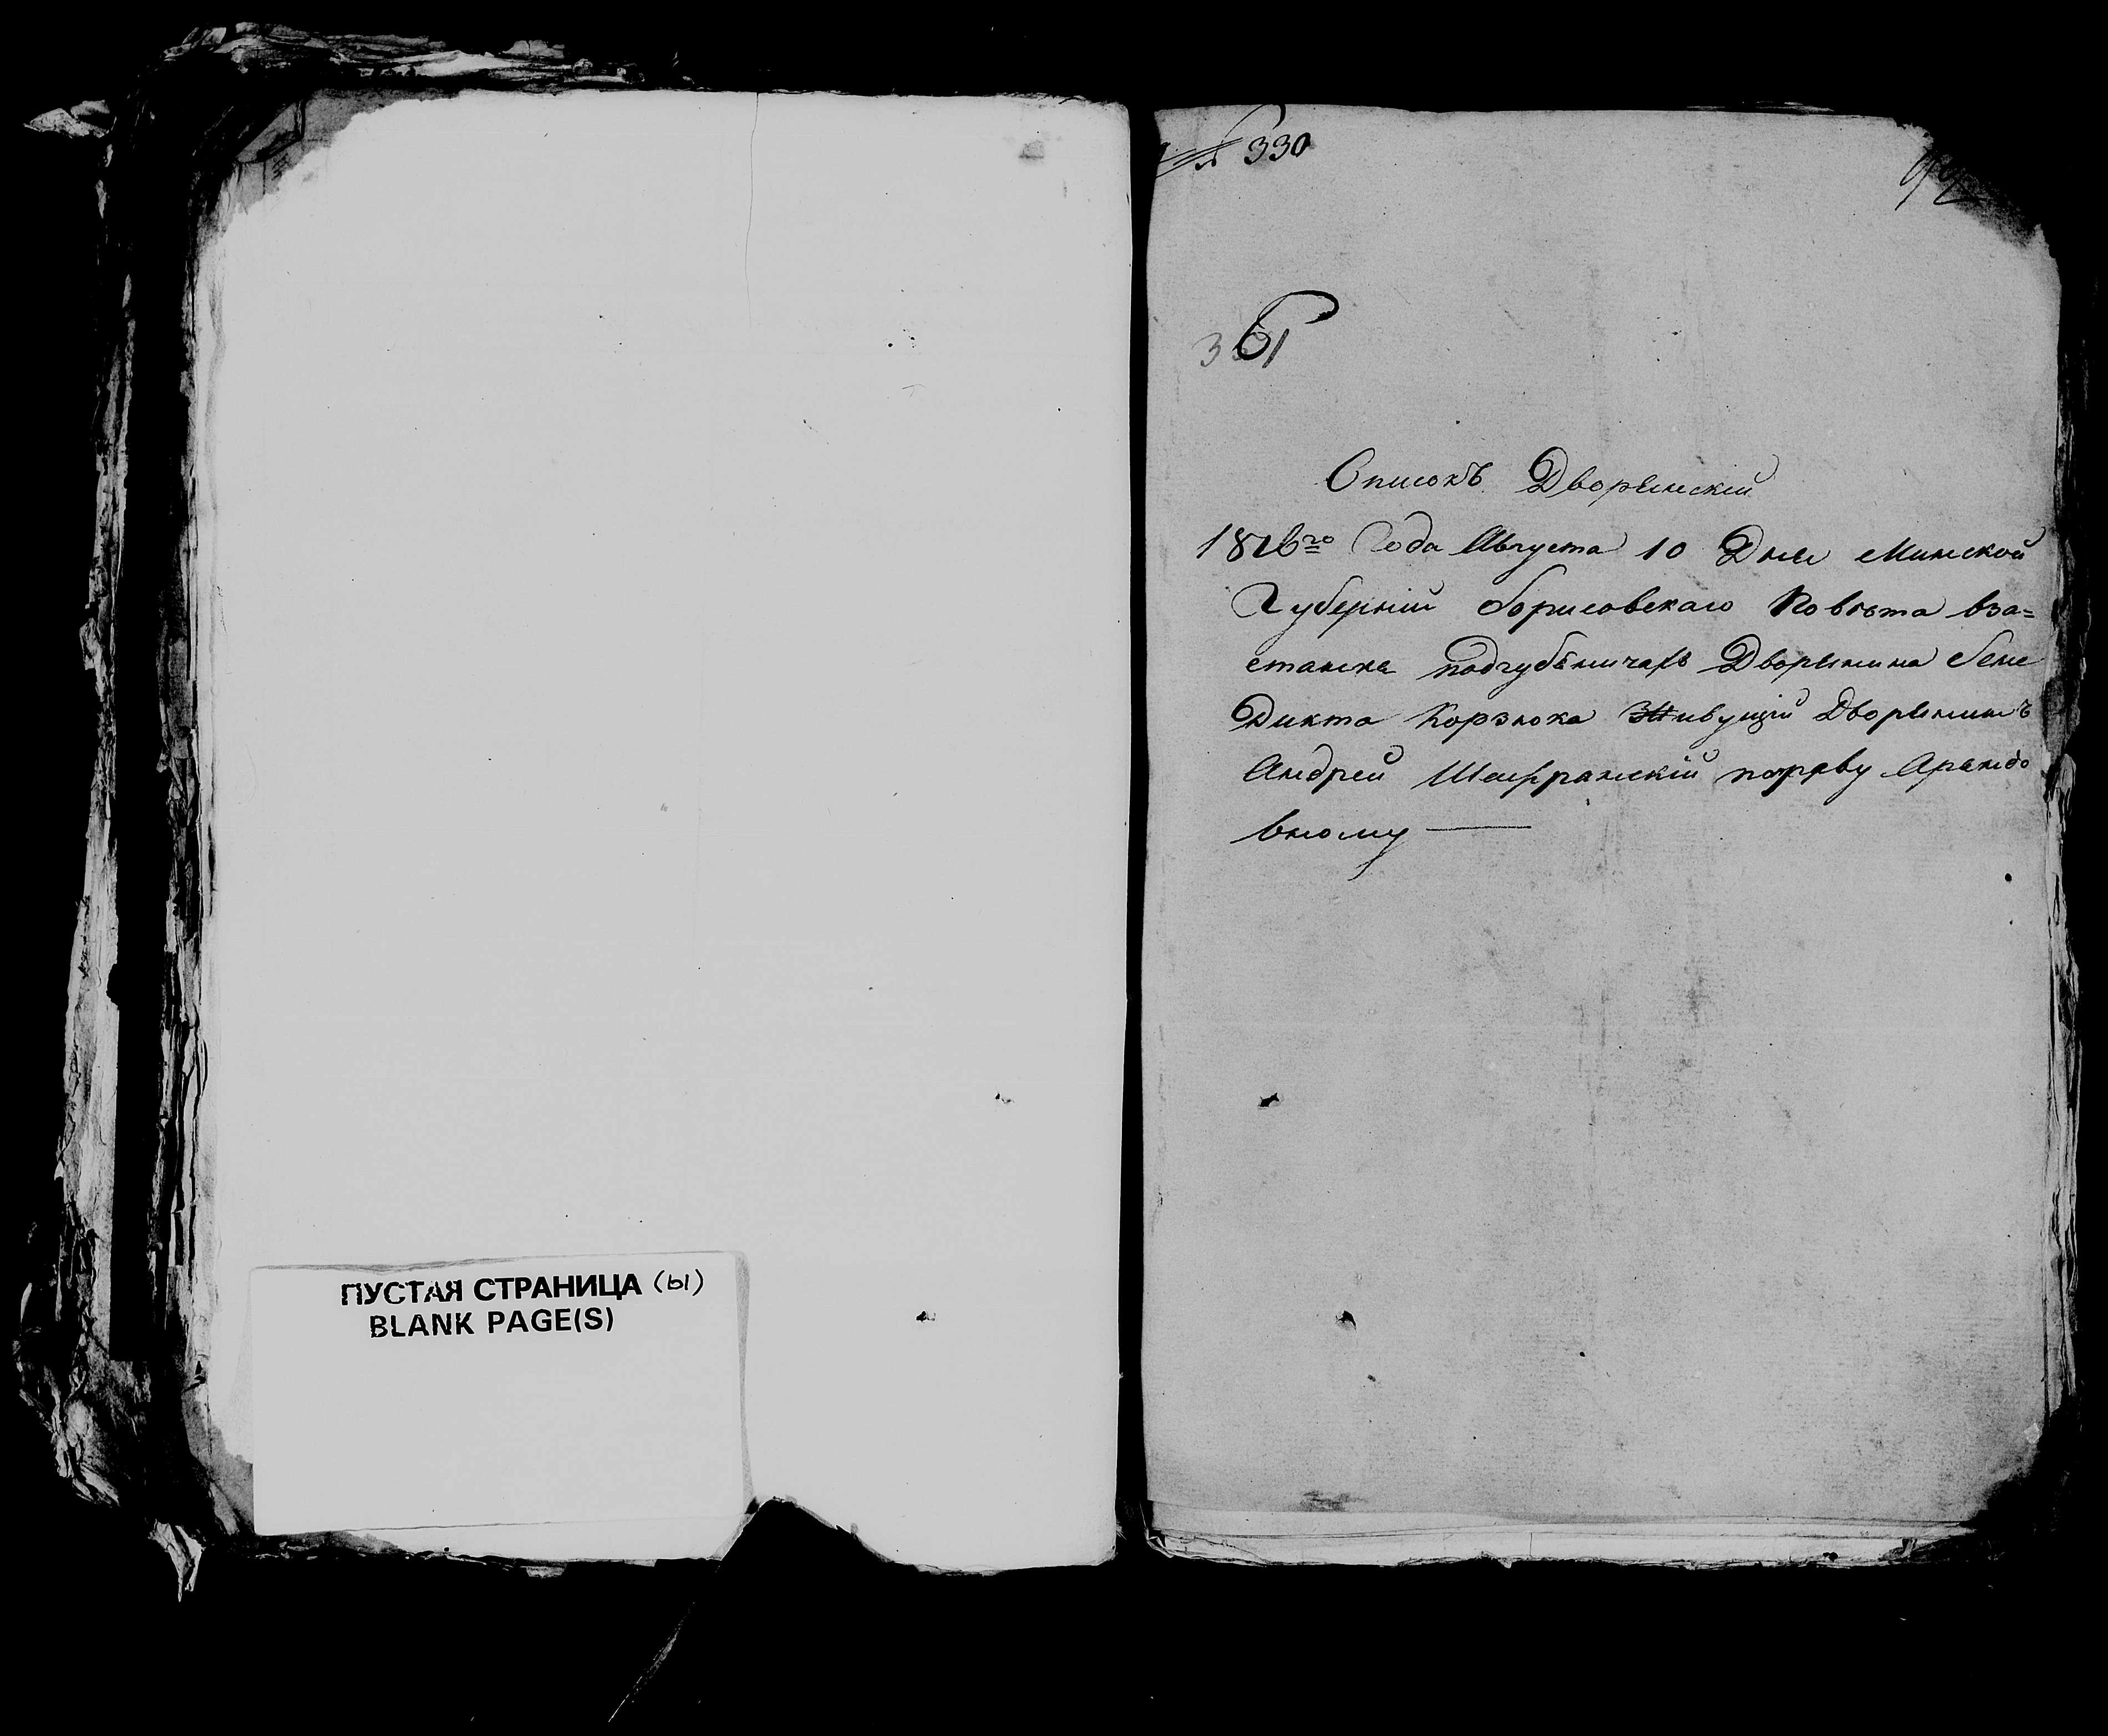 ПУСТАЯ СТРАНИЦА (ы)
BLANK PAGE(S)
№ 330
Списокъ Дворянскій
1816го Года Августа 10 Дня Минской
Губерніи борисовскаго Повѣта вза=
станка Дворянина бене
Дикта Корзюка Живущій Дворянинъ
Андрей Шафранскій поправу Арендо
вному